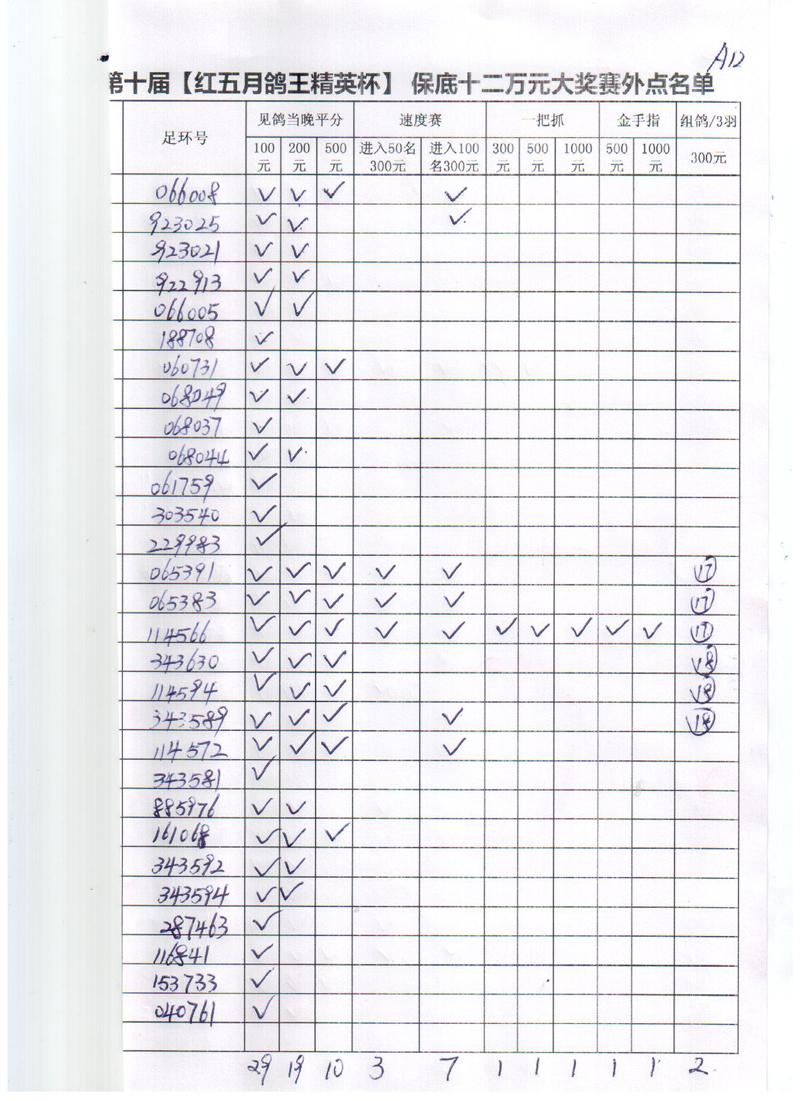 A12
第十届【红五月鸽王精英杯】 保底十二万元大奖赛外点名单
足环号 见鸽当晚平分 速度赛 一把抓 金手指 组鸽/3羽
100元 200元 500元 进入50名300元 进入100名300元 300元 500元 1000元 500元 1000元 300元
066008 ✓ ✓ ✓ ✓
923025 ✓ ✓ ✓
923021 ✓ ✓
922913 ✓ ✓
066005 ✓ ✓
188708 ✓
060731 ✓ ✓ ✓
068049 ✓ ✓
068037 ✓
068044 ✓ ✓
061759 ✓
303540 ✓
229983 ✓
065391 ✓ ✓ ✓ ✓ ✓ ⑰
065383 ✓ ✓ ✓ ✓ ✓ ⑰
114566 ✓ ✓ ✓ ✓ ✓ ✓ ✓ ✓ ✓ ✓ ⑰
343630 ✓ ✓ ✓ ⑱
114594 ✓ ✓ ✓ ⑱
343589 ✓ ✓ ✓ ✓ ⑱
114572 ✓ ✓ ✓ ✓
343581 ✓
885976 ✓ ✓
161068 ✓ ✓ ✓
343592 ✓ ✓
343594 ✓ ✓
287463 ✓
116841 ✓
153733 ✓
040761 ✓
29 19 10 3 7 1 1 1 1 1 2